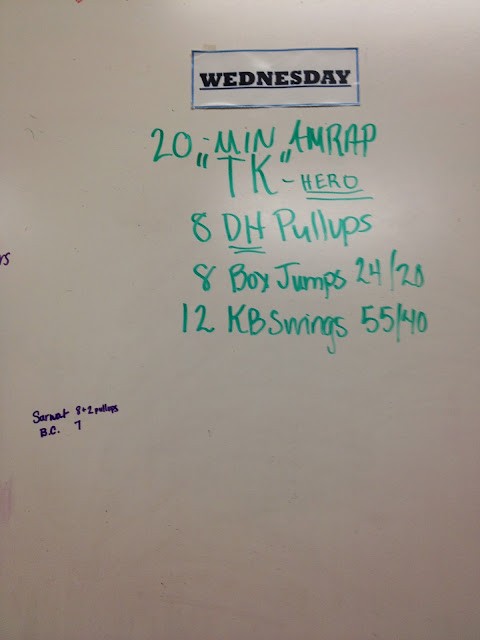 WEDNESDAY
20-MIN AMRAP
"TK" - HERO
8 DH Pullups
8 Box Jumps 24/20
12 KB Swings 55/40
Sarwat 8+2 pullups
B.C. 7